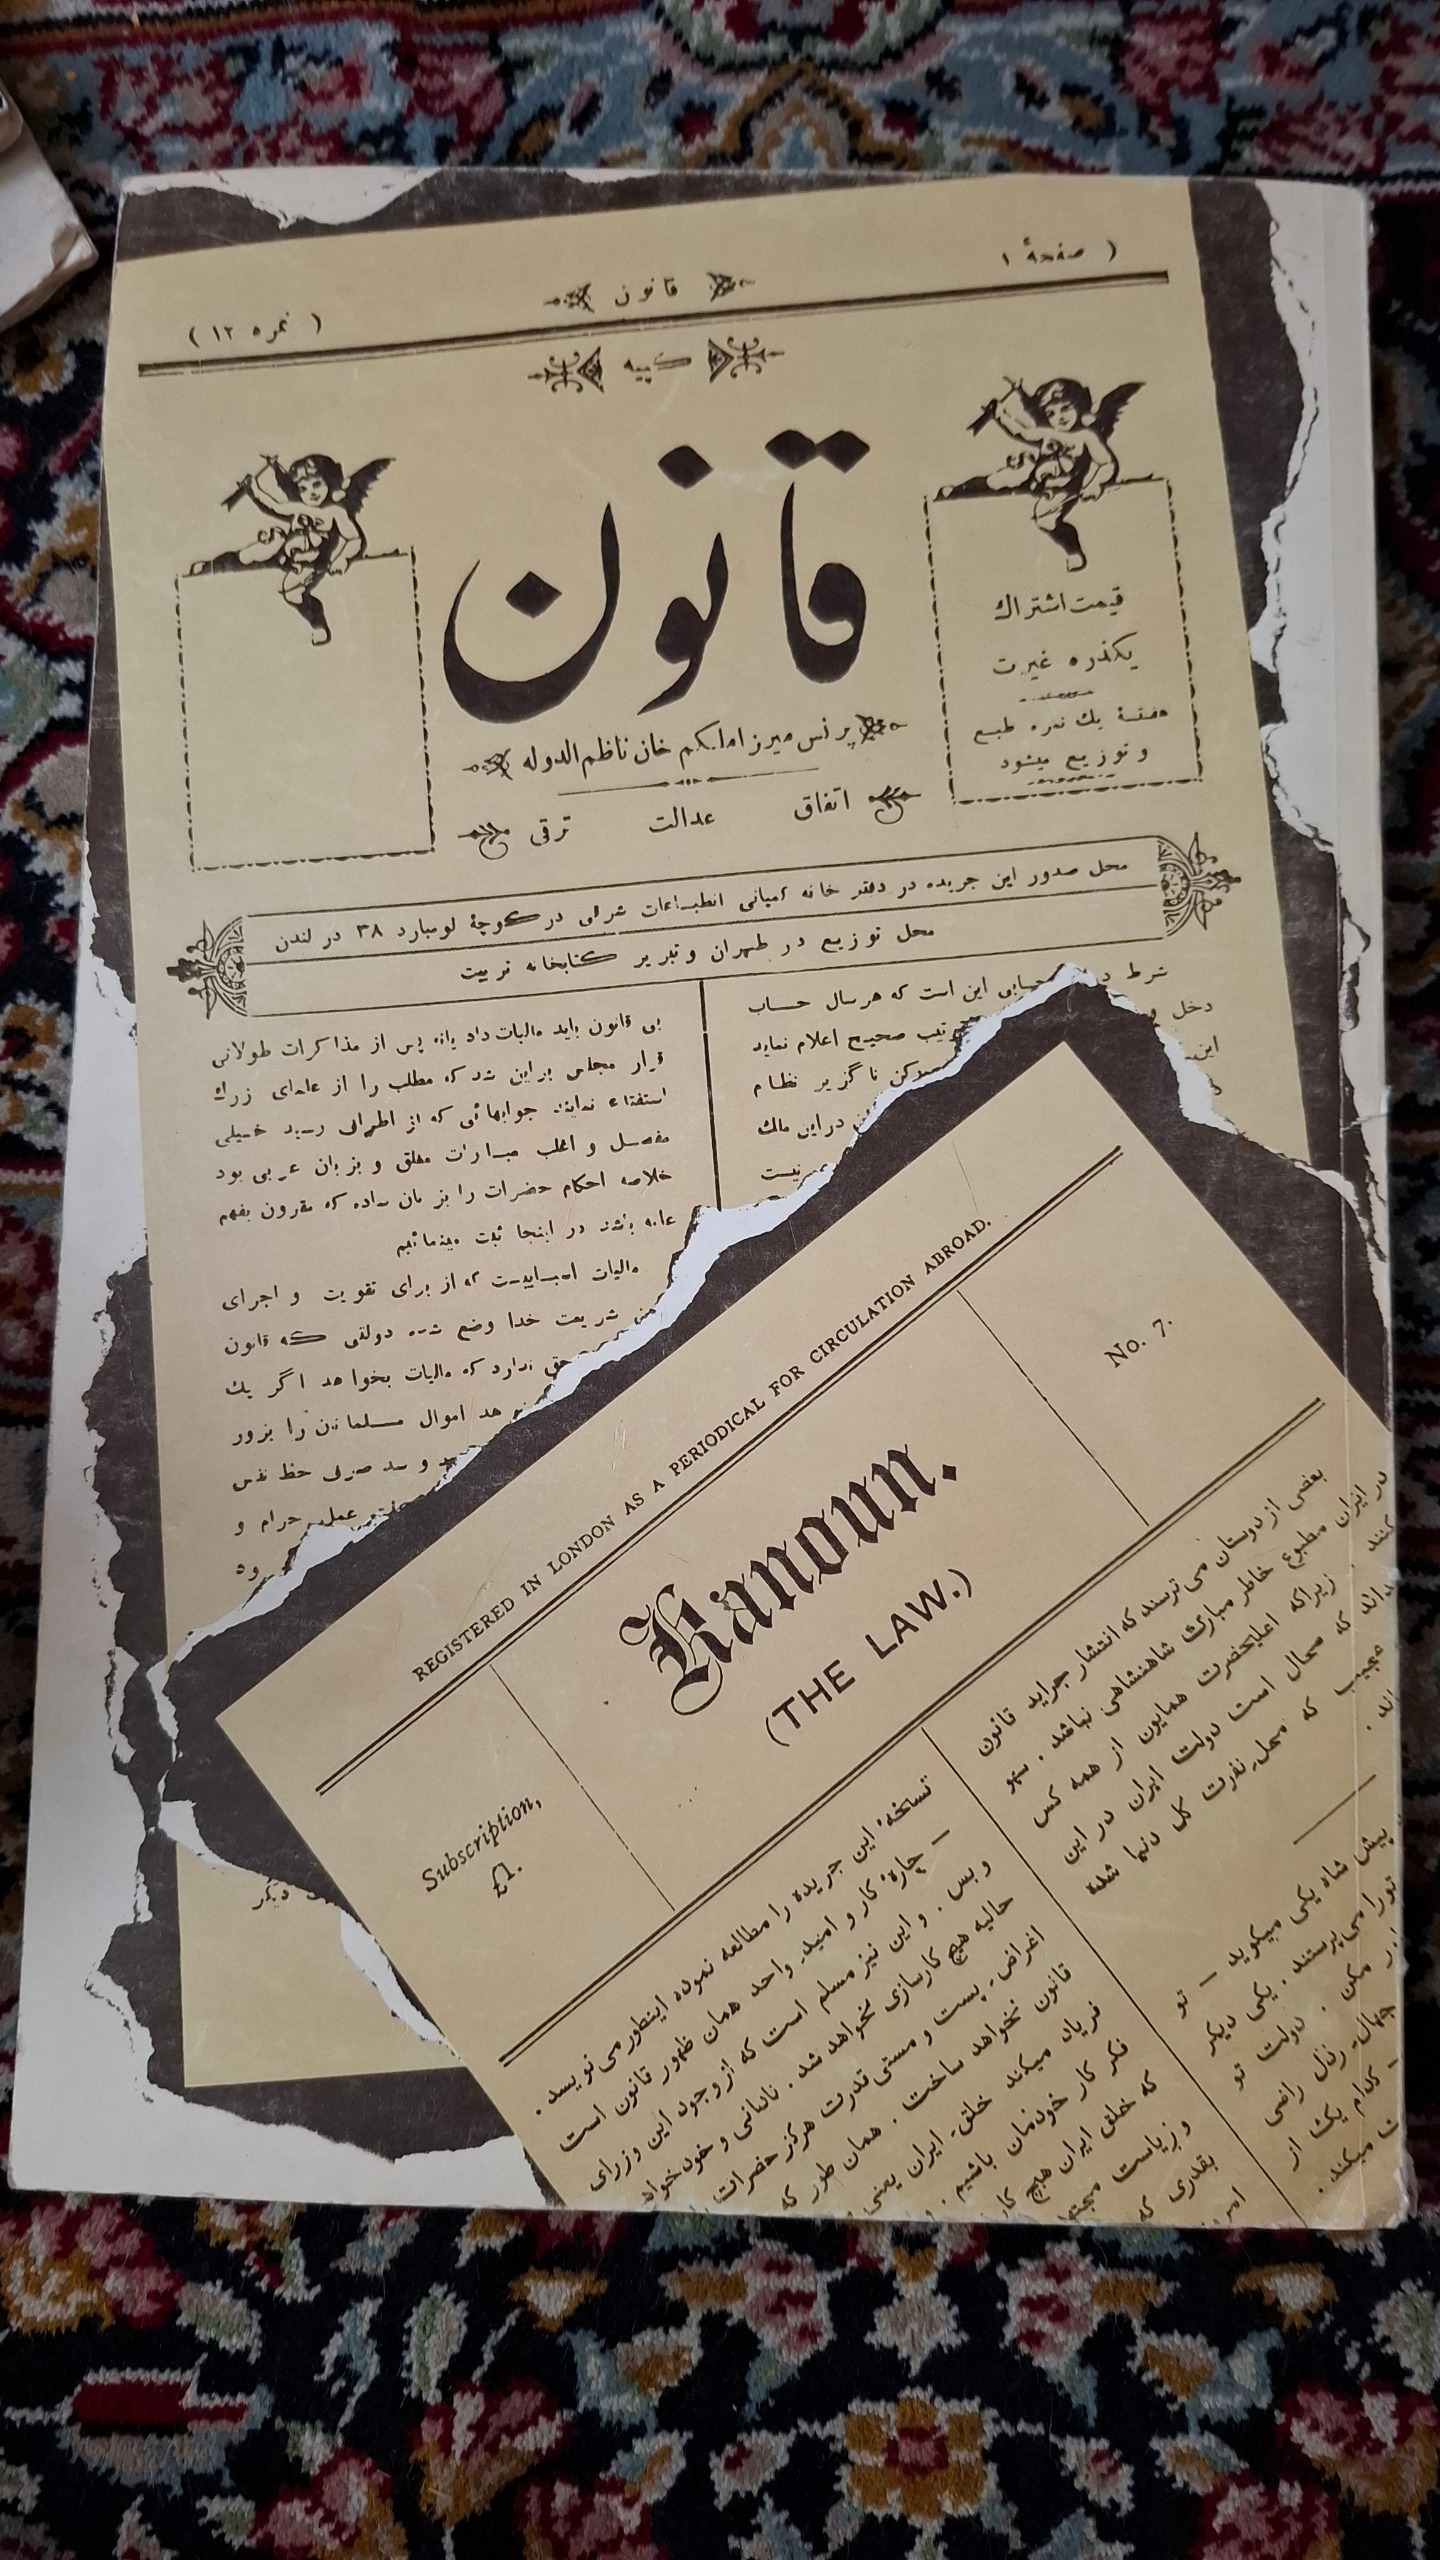 ( صفحهٔ ۱
قانون
( نمره ۱۲ )
کپیه
قانون
پرنس میرزا ملکم خان ناظم الدوله
اتفاق عدالت ترقی
قیمت اشتراك
یکذره غیرت
هفتهٔ یك نمره طبع
و توزیع میشود
محل صدور این جریده در دفتر خانه کمپانی انطباعات شرقی در کوچهٔ لومبارد ۳۸ در لندن
محل توزیع در طهران و تبریز کتابخانه تربیت
شرط این است که هر سال حساب
دخل و صحیح اعلام نماید
این ناگزیر نظام
در این ملك
نیست
بی قانون باید مالیات داد یا نه پس از مذاکرات طولانی
قرار مجلس بر این شد که مطلب را از علمای بزرك
استفتاء نمایند جوابهائی که از اطراف رسید خیلی
مفصل و اغلب عبارات مغلق و بزبان عربی بود
خلاصه احکام حضرات را بزبان ساده که مقرون بفهم
عامه باشد در اینجا ثبت مینمائیم
مالیات اسبابیست که از برای تقویت و اجرای
شریعت خدا وضع شده دولتی که قانون
حق ندارد که مالیات بخواهد اگر یك
اموال مسلمانان را بزور
و صرف حظ نفس
عمل حرام و
دیگر
REGISTERED IN LONDON AS A PERIODICAL FOR CIRCULATION ABROAD.
Subscription,
£1.
Kanoun.
(THE LAW.)
No. 7.
بعضی از دوستان می ترسند که انتشار جراید قانون
در ایران مطبوع خاطر مبارک شاهنشاهی نباشد . سهو
کنند . زیراکه اعلیحضرت همایون از همه کس
داند که محال است دولت ایران در این
عجیب که محل نفرت کل دنیا شده
اند .
پیش شاه یکی میگوید — تو
تورا می پرستند . یکی دیگر
مکن . دولت تو
جهال رذل راضی
— کدام یک از
ت میکند .
نسخهٔ این جریده را مطالعه نموده اینطور می نویسد .
— چارهٔ کار و امید واحد همان ظهور قانون است
و بس . و این نیز مسلم است که از وجود این وزرای
حالیه هیچ کارسازی نخواهد شد . نادانی و خودخواه
اغراض پست و مستی قدرت هرگز حضرات
قانون نخواهد ساخت . همان طور که
فریاد میکند خلق ایران یعنی
فکر کار خودمان باشیم .
که خلق ایران هیچ کار
و ریاست
بقدری که
امر